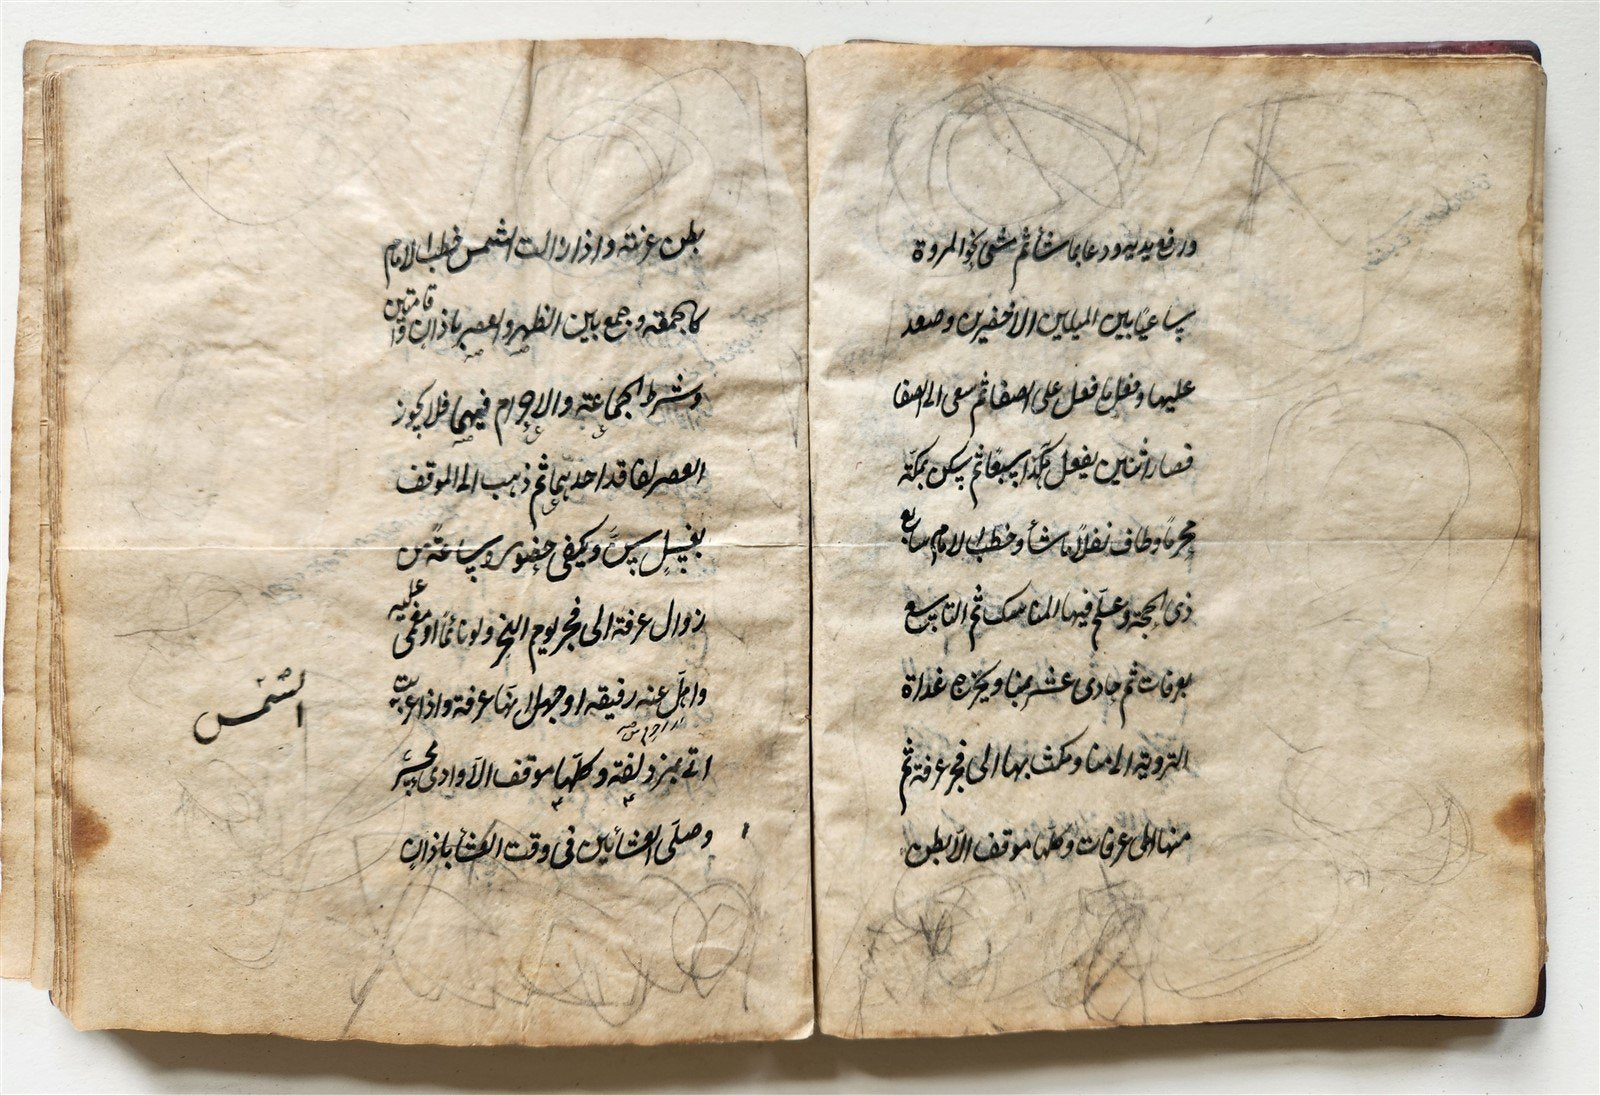 ورفع يديه ودعا بما شأ ثم مشى نحو المروة
ساعيًا بين الميلين الاخضرين وصعد
عليها وفعل ما فعل على الصفا ثم سعى الى الصفا
فصار اثنين يفعل هكذا سبعًا ثم سكن بمكة
محرمًا وطاف نفلًا ما شأ وخطب الامام سابع
ذى الحجة وعلّم فيها المناسك ثم التاسع
بعرفات ثم حادى عشر بمنا ويخرج غداة
التروية الى منا ومكث بها الى فجر عرفة ثم
منها الى عرفات وكلها موقف الّا بطن
بطن عرنة واذا زالت الشمس خطب الامام
كالجمعة وجمع بين الظهر والعصر باذان واقامتين
وشرط الجماعة والاحرام فيهما فلا يجوز
العصر لفاقد احدهما ثم ذهب الى الموقف
بغسل سنّ ويكفى حضور ساعة من
زوال عرفة الى فجر يوم النحر ولو نائمًا او مغمى عليه
واهلّ عنه رفيقه او جهل انها عرفة واذا غربت
الشمس
اتى بمزدلفة وكلها موقف الّا وادى محسّر
وصلّى العشائين فى وقت العشأ باذان